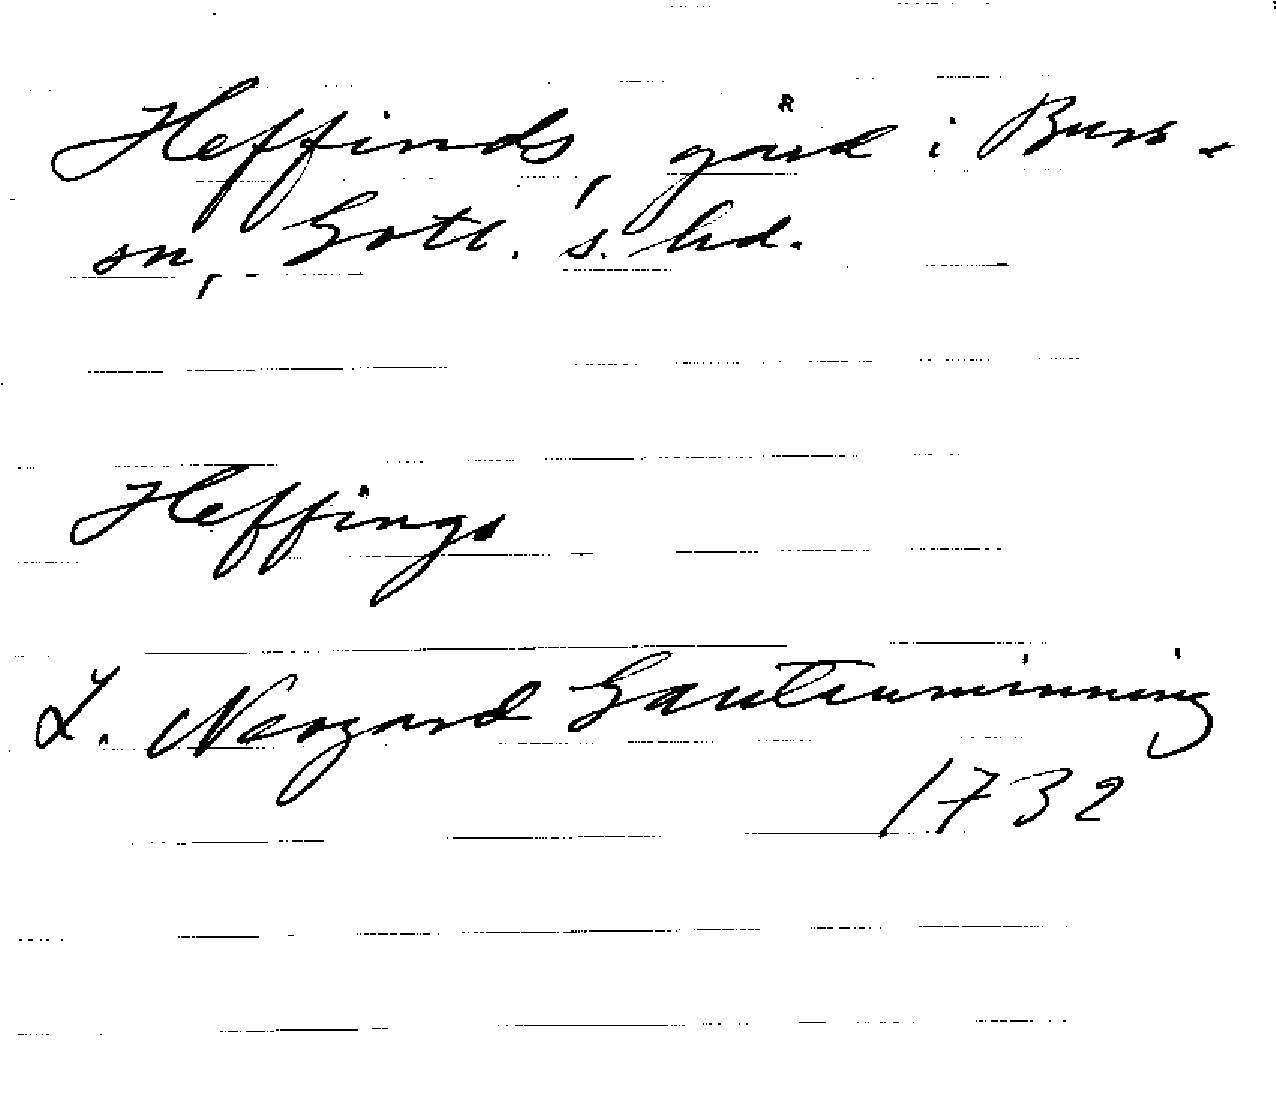 Heffinds, gård i Burs
sn, Gotl. s. hd.
Heffings
L. Neogard Gautauminning
1732